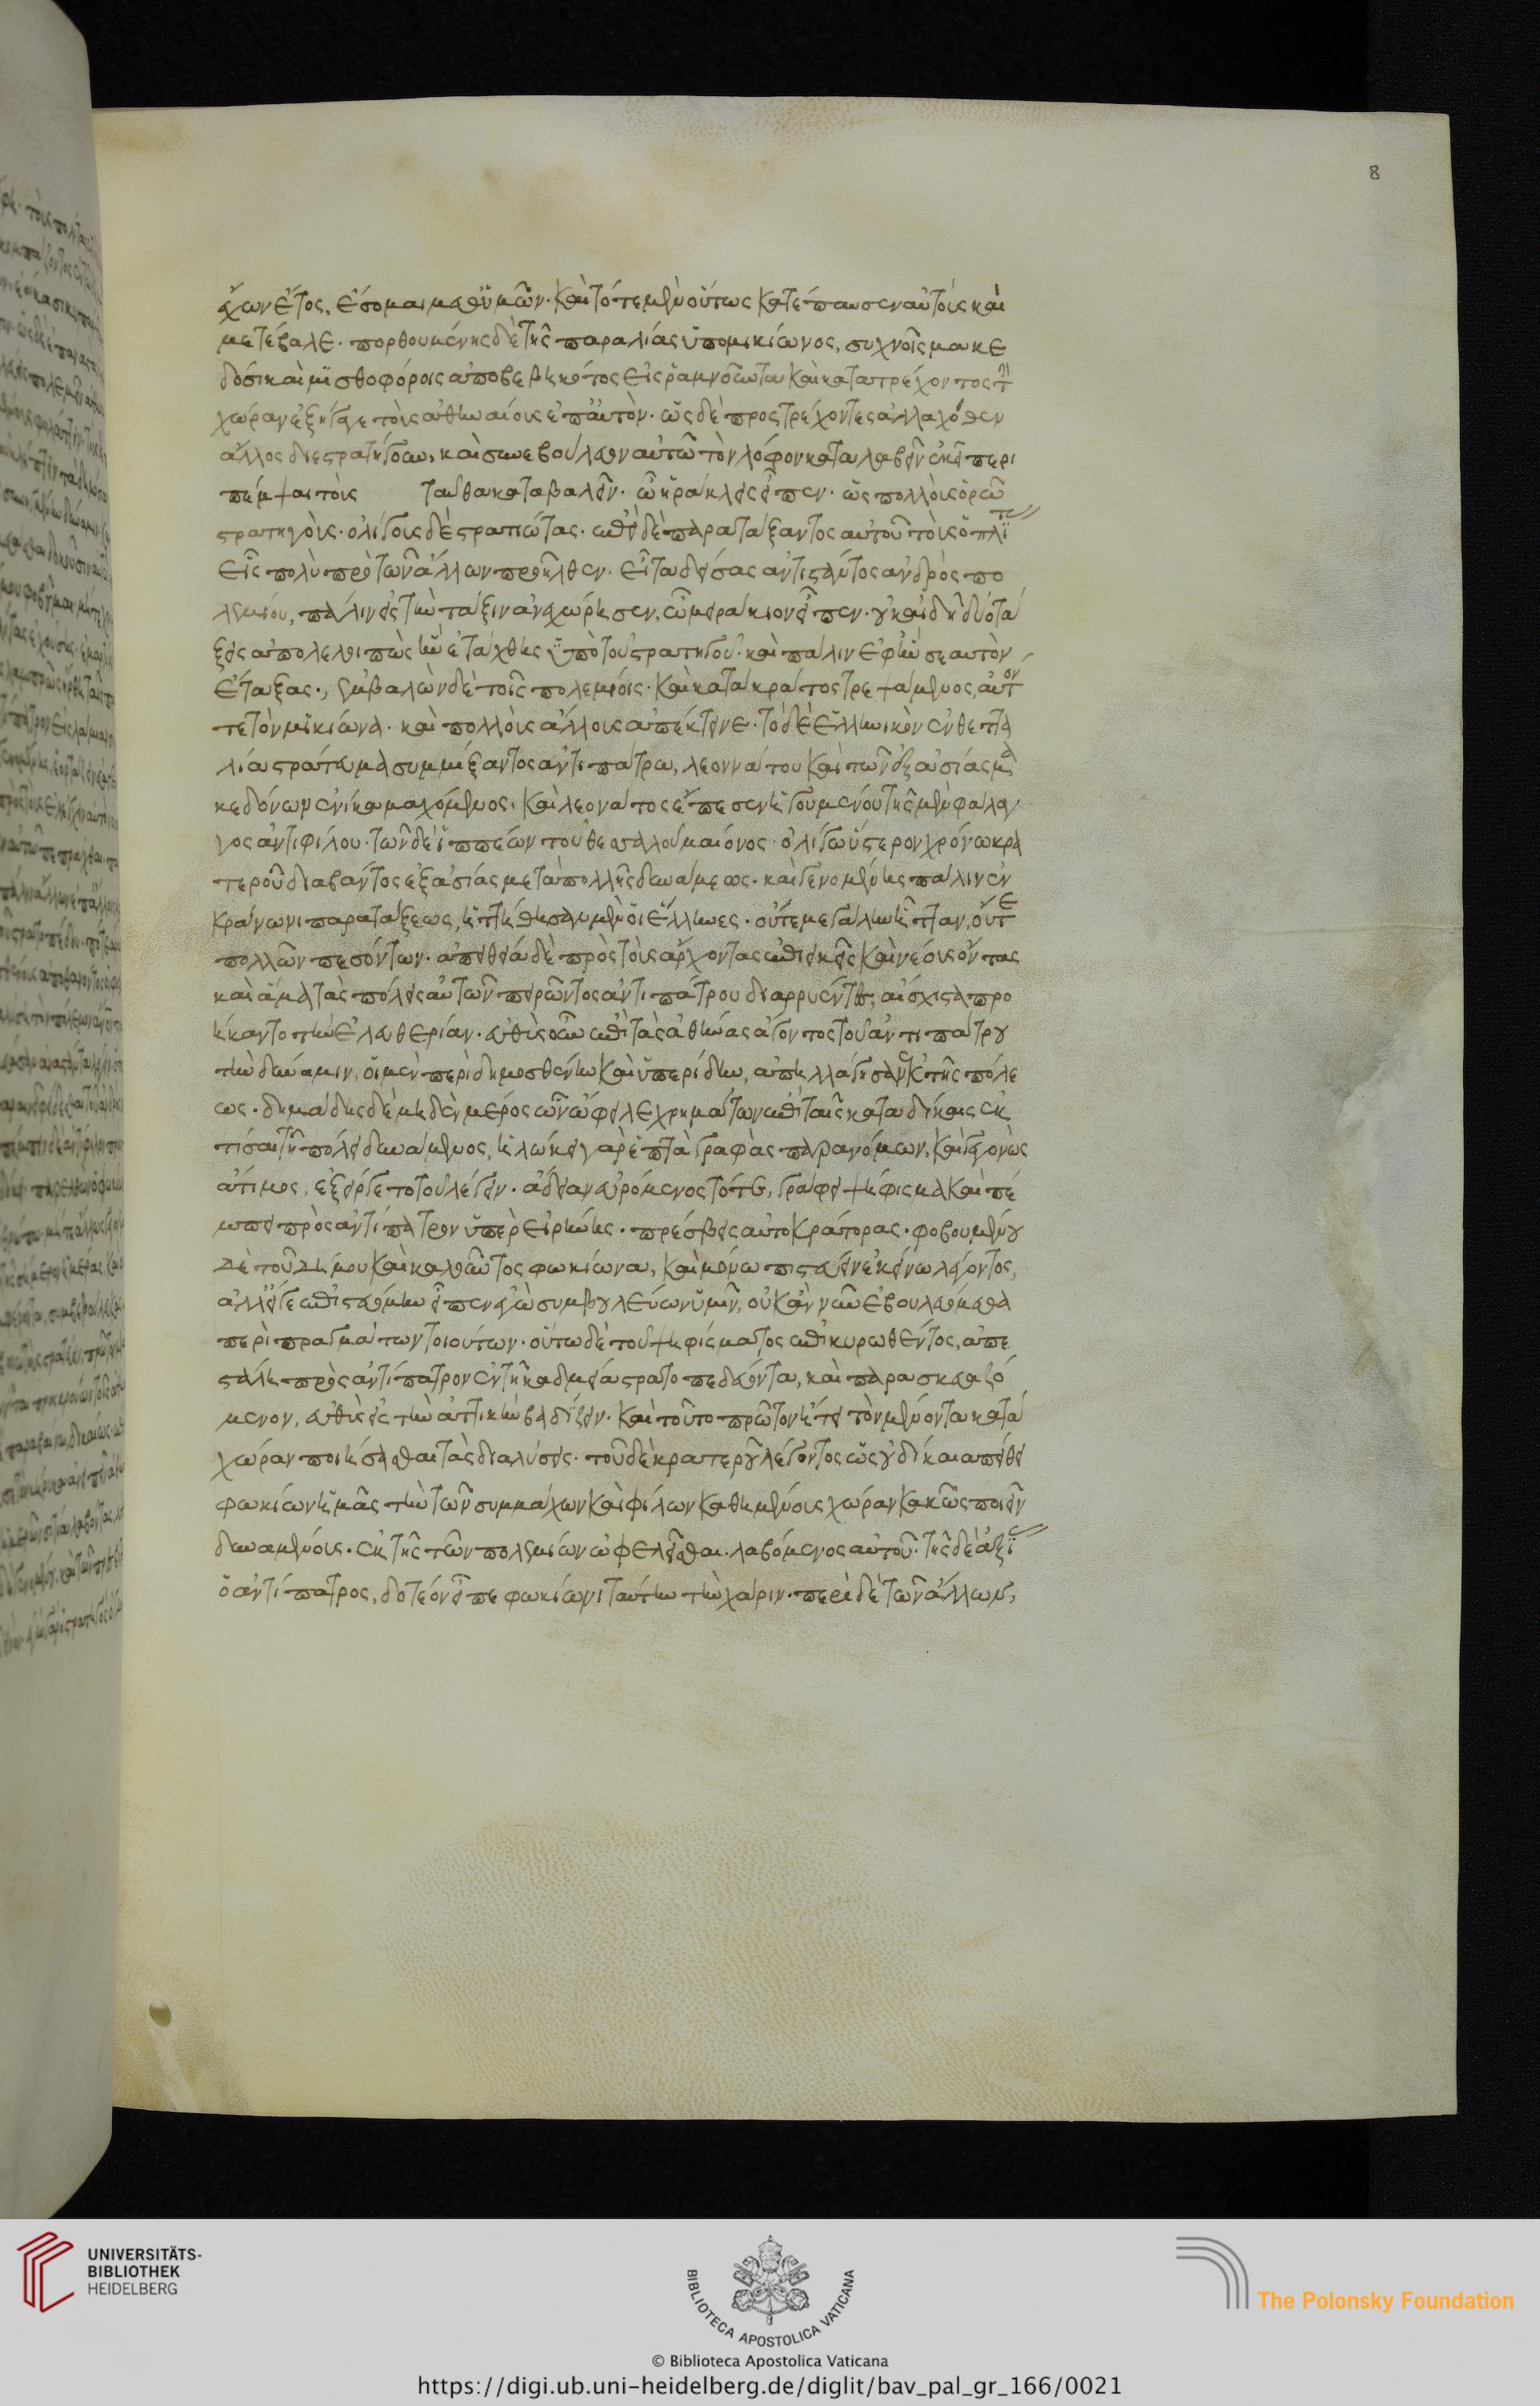 8
ἄγων ἔτος, ἔσομαι μεθ ὑμῶν. καὶ τότε μὲν οὕτως κατέπαυσεν αὐτοὺς καὶ
μετέβαλε. πορθουμένης δὲ τῆς παραλίας ὑπο μικίωνος, συχνοῖς μακε
δόσι καὶ μϊσθοφόροις ἀποβεβηκότος εἰς ῥαμνοῦντα καὶ κατατρέχοντος τὴν
χώραν ἐξήγαγε τοὺς ἀθηναίους ἐπ αὐτὸν. ὡς δὲ προστρέχοντες ἀλλαχόθεν
ἄλλος διεστρατήγουν, καὶ συνεβούλευον αὐτῶ τὸν λόφον καταλαβεῖν ἐκεῖ περι
πέμψαι τοὺς ταῦθα καταβαλεῖν. ὦ ἡράκλεις εἶπεν. ὡς πολλοὺς ὁρῶ
στρατηγοὺς. ὀλίγους δὲ στρατιώτας. ἐπεὶ δὲ παραταξαντος αὐτοῦ τοὺς ὁπλίτας
εἷς πολὺ πρὸ τῶν ἄλλων προῆλθεν. εἶτα δείσας ἀντιστάντος ἀνδρὸς πο
λεμίου, πάλιν εἰς τὴν τάξιν ἀνεχώρησεν. ὦ μειράκιον εἶπεν. οὐκ αἰδῆ δύο τά
ξεις ἀπολελοιπὼς ἣν ἐτάχθης ὑπὸ τοῦ στρατηγοῦ. καὶ πάλιν ἐφ ἣν σεαυτὸν
ἔταξας. ἐμβαλὼν δὲ τοῖς πολεμίοις. καὶ κατακράτος τρεψάμενος, αὐτόν
τε τὸν μικίωνα. καὶ πολλοὺς ἄλλους ἀπέκτεινε. τὸ δὲ ἑλληνικὸν ἐν θεττα
λία στράτευμα συμμίξαντος ἀντιπάτρω, λεοννάτου καὶ τῶν ἐξ ἀσίας μα
κεδόνων ἐνίκα μαχόμενος. καὶ λεονατος ἔπεσεν ἡγουμένου τῆς μὲν φάλαγ
γος ἀντιφίλου. τῶν δὲ ἱππέων τοῦ θεσσαλοῦ μαίονος. ὀλίγω ὕστερον χρόνω κρα
τεροῦ διαβάντος ἐξ ἀσίας μετὰ πολλῆς δυνάμεως. καὶ γενομένης πάλιν ἐν
κρανωνι παρατάξεως, ἡττήθησαν μὲν οἱ ἕλληνες. οὔτε μεγάλην ἧτταν, οὔτε
πολλῶν πεσόντων. ἀπειθεία δὲ πρὸς τοὺς ἄρχοντας ἐπιεικεῖς καὶ νέους ὄντας
καὶ ἅμα τὰς πόλεις αὐτῶν πειρῶντος ἀντιπάτρου διαρρυέντες, αἴσχιστα προ
ήκαντο τὴν ἐλευθερίαν. εὐθὺς οὖν ἐπὶ τὰς ἀθήνας ἄγοντος τοῦ ἀντιπάτρου
τὴν δύναμιν, οἱ μὲν περὶ δημοσθένην καὶ ὑπερίδην, ἀπηλλάγησαν ἐκ τῆς πόλε
ως. δημάδης δὲ μηδὲν μέρος ὧν ὤφειλε χρημάτων ἐπὶ ταῖς καταδίκαις ἐκ
τίσαι τῆ πόλει δυνάμενος, ἡλώκει γὰρ ἑπτὰ γραφὰς παρανόμων, καὶ γεγονὼς
ἄτιμος, ἐξείργετο τοῦ λέγειν. ἄδειαν εὑρόμενος τότε, γράφει ψήφισμα καὶ πέ
μπει πρὸς ἀντίπατρον ὑπὲρ εἰρήνης. πρέσβεις αὐτοκράτορας. φοβουμένου
δὲ τοῦ δήμου καὶ καλοῦντος φωκίωνα, καὶ μόνω πιστεύειν ἐκείνω λέγοντος,
ἀλλ εἴγε ἐπιστευόμην εἶπεν ἐγὼ συμβουλεύων ὑμῖν, οὐκ ἂν νῦν ἐβουλευόμεθα
περὶ πραγμάτων τοιούτων. οὕτω δὲ τοῦ ψηφίσματος ἐπικυρωθέντος, ἀπε
στάλη πρὸς ἀντίπατρον ἐν τῆ καδμεία στρατοπεδεύοντα, καὶ παρασκευαζό
μενον, εὐθὺς εἰς τὴν ἀττικὴν βαδίζειν. καὶ τοῦτο πρῶτον ἤτει τὸν μένοντα κατὰ
χώραν ποιήσασθαι τὰς διαλύσεις. τοῦ δὲ κρατεροῦ λέγοντος ὡς οὐ δίκαια πείθει
φωκίων ἡμᾶς τὴν τῶν συμμάχων καὶ φίλων καθημένους χώραν κακῶς ποιεῖν
δυναμένους. ἐκ τῆς τῶν πολεμίων ὠφελεῖσθαι. λαβόμενος αὐτοῦ. τῆς δεξιᾶς
ὁ ἀντίπατρος, δοτέον εἶπε φωκίωνι ταύτην τὴν χάριν. περὶ δὲ τῶν ἄλλων,
UNIVERSITÄTS-
BIBLIOTHEK
HEIDELBERG
BIBLIOTECA APOSTOLICA VATICANA
The Polonsky Foundation
© Biblioteca Apostolica Vaticana
https://digi.ub.uni-heidelberg.de/diglit/bav_pal_gr_166/0021